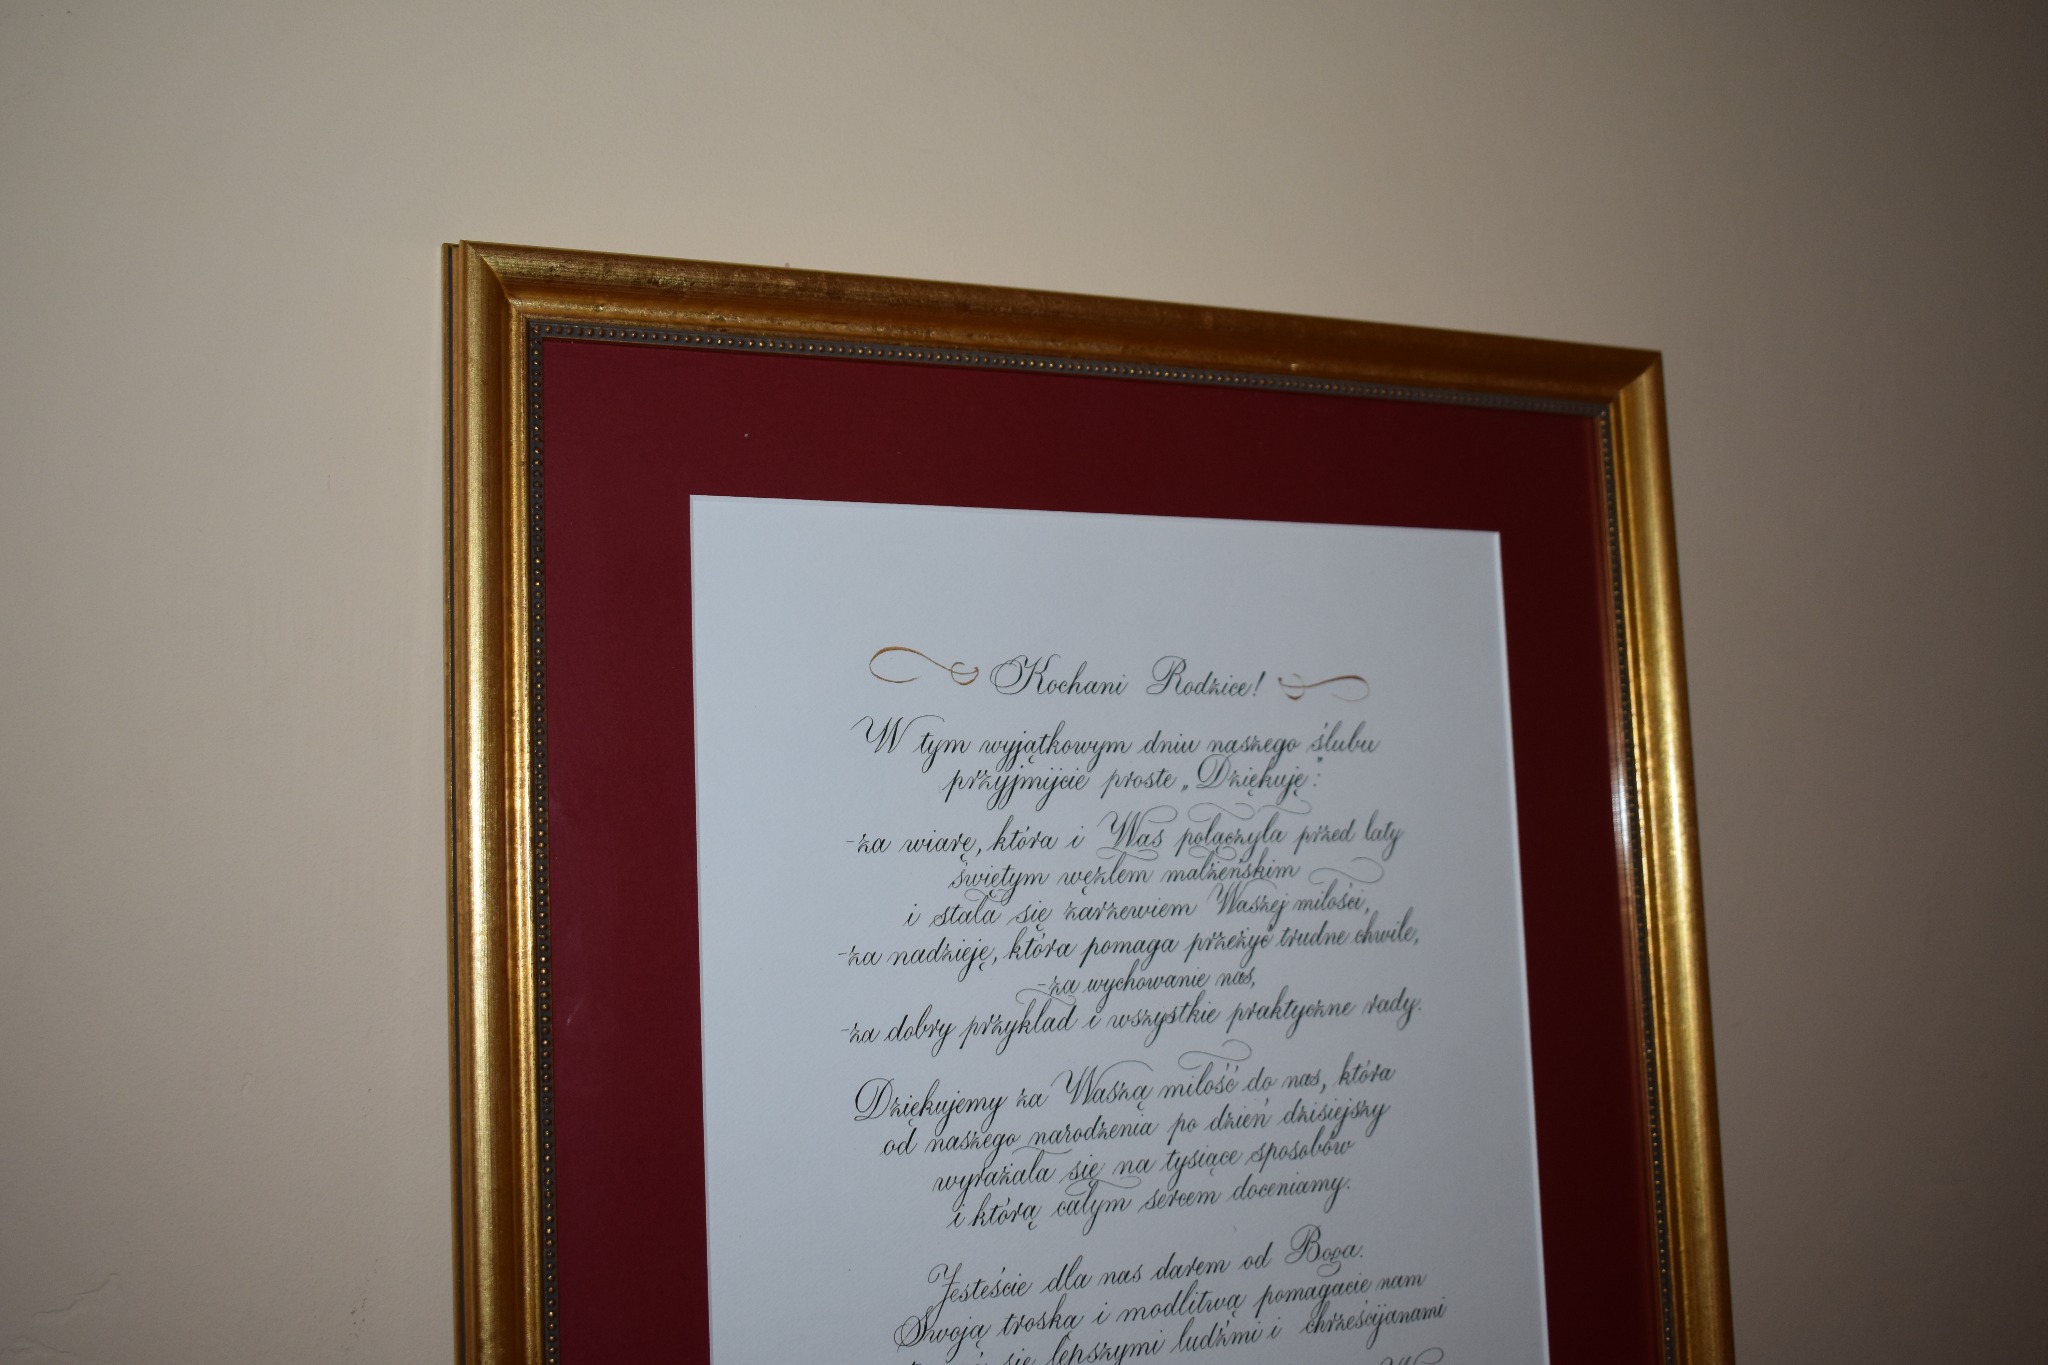 Kochani Rodzice!
W tym wyjątkowym dniu naszego ślubu
przyjmijcie proste „Dziękuję”:
-za wiarę, która i Was połączyła przed laty
świętym węzłem małżeńskim
i stała się zarzewiem Waszej miłości,
-za nadzieję, która pomaga przeżyć trudne chwile,
-za wychowanie nas,
-za dobry przykład i wszystkie praktyczne rady.
Dziękujemy za Waszą miłość do nas, która
od naszego narodzenia po dzień dzisiejszy
wyrażała się na tysiące sposobów
i którą całym sercem doceniamy.
Jesteście dla nas darem od Boga.
Swoją troską i modlitwą pomagacie nam
się lepszymi ludźmi i chrześcijanami